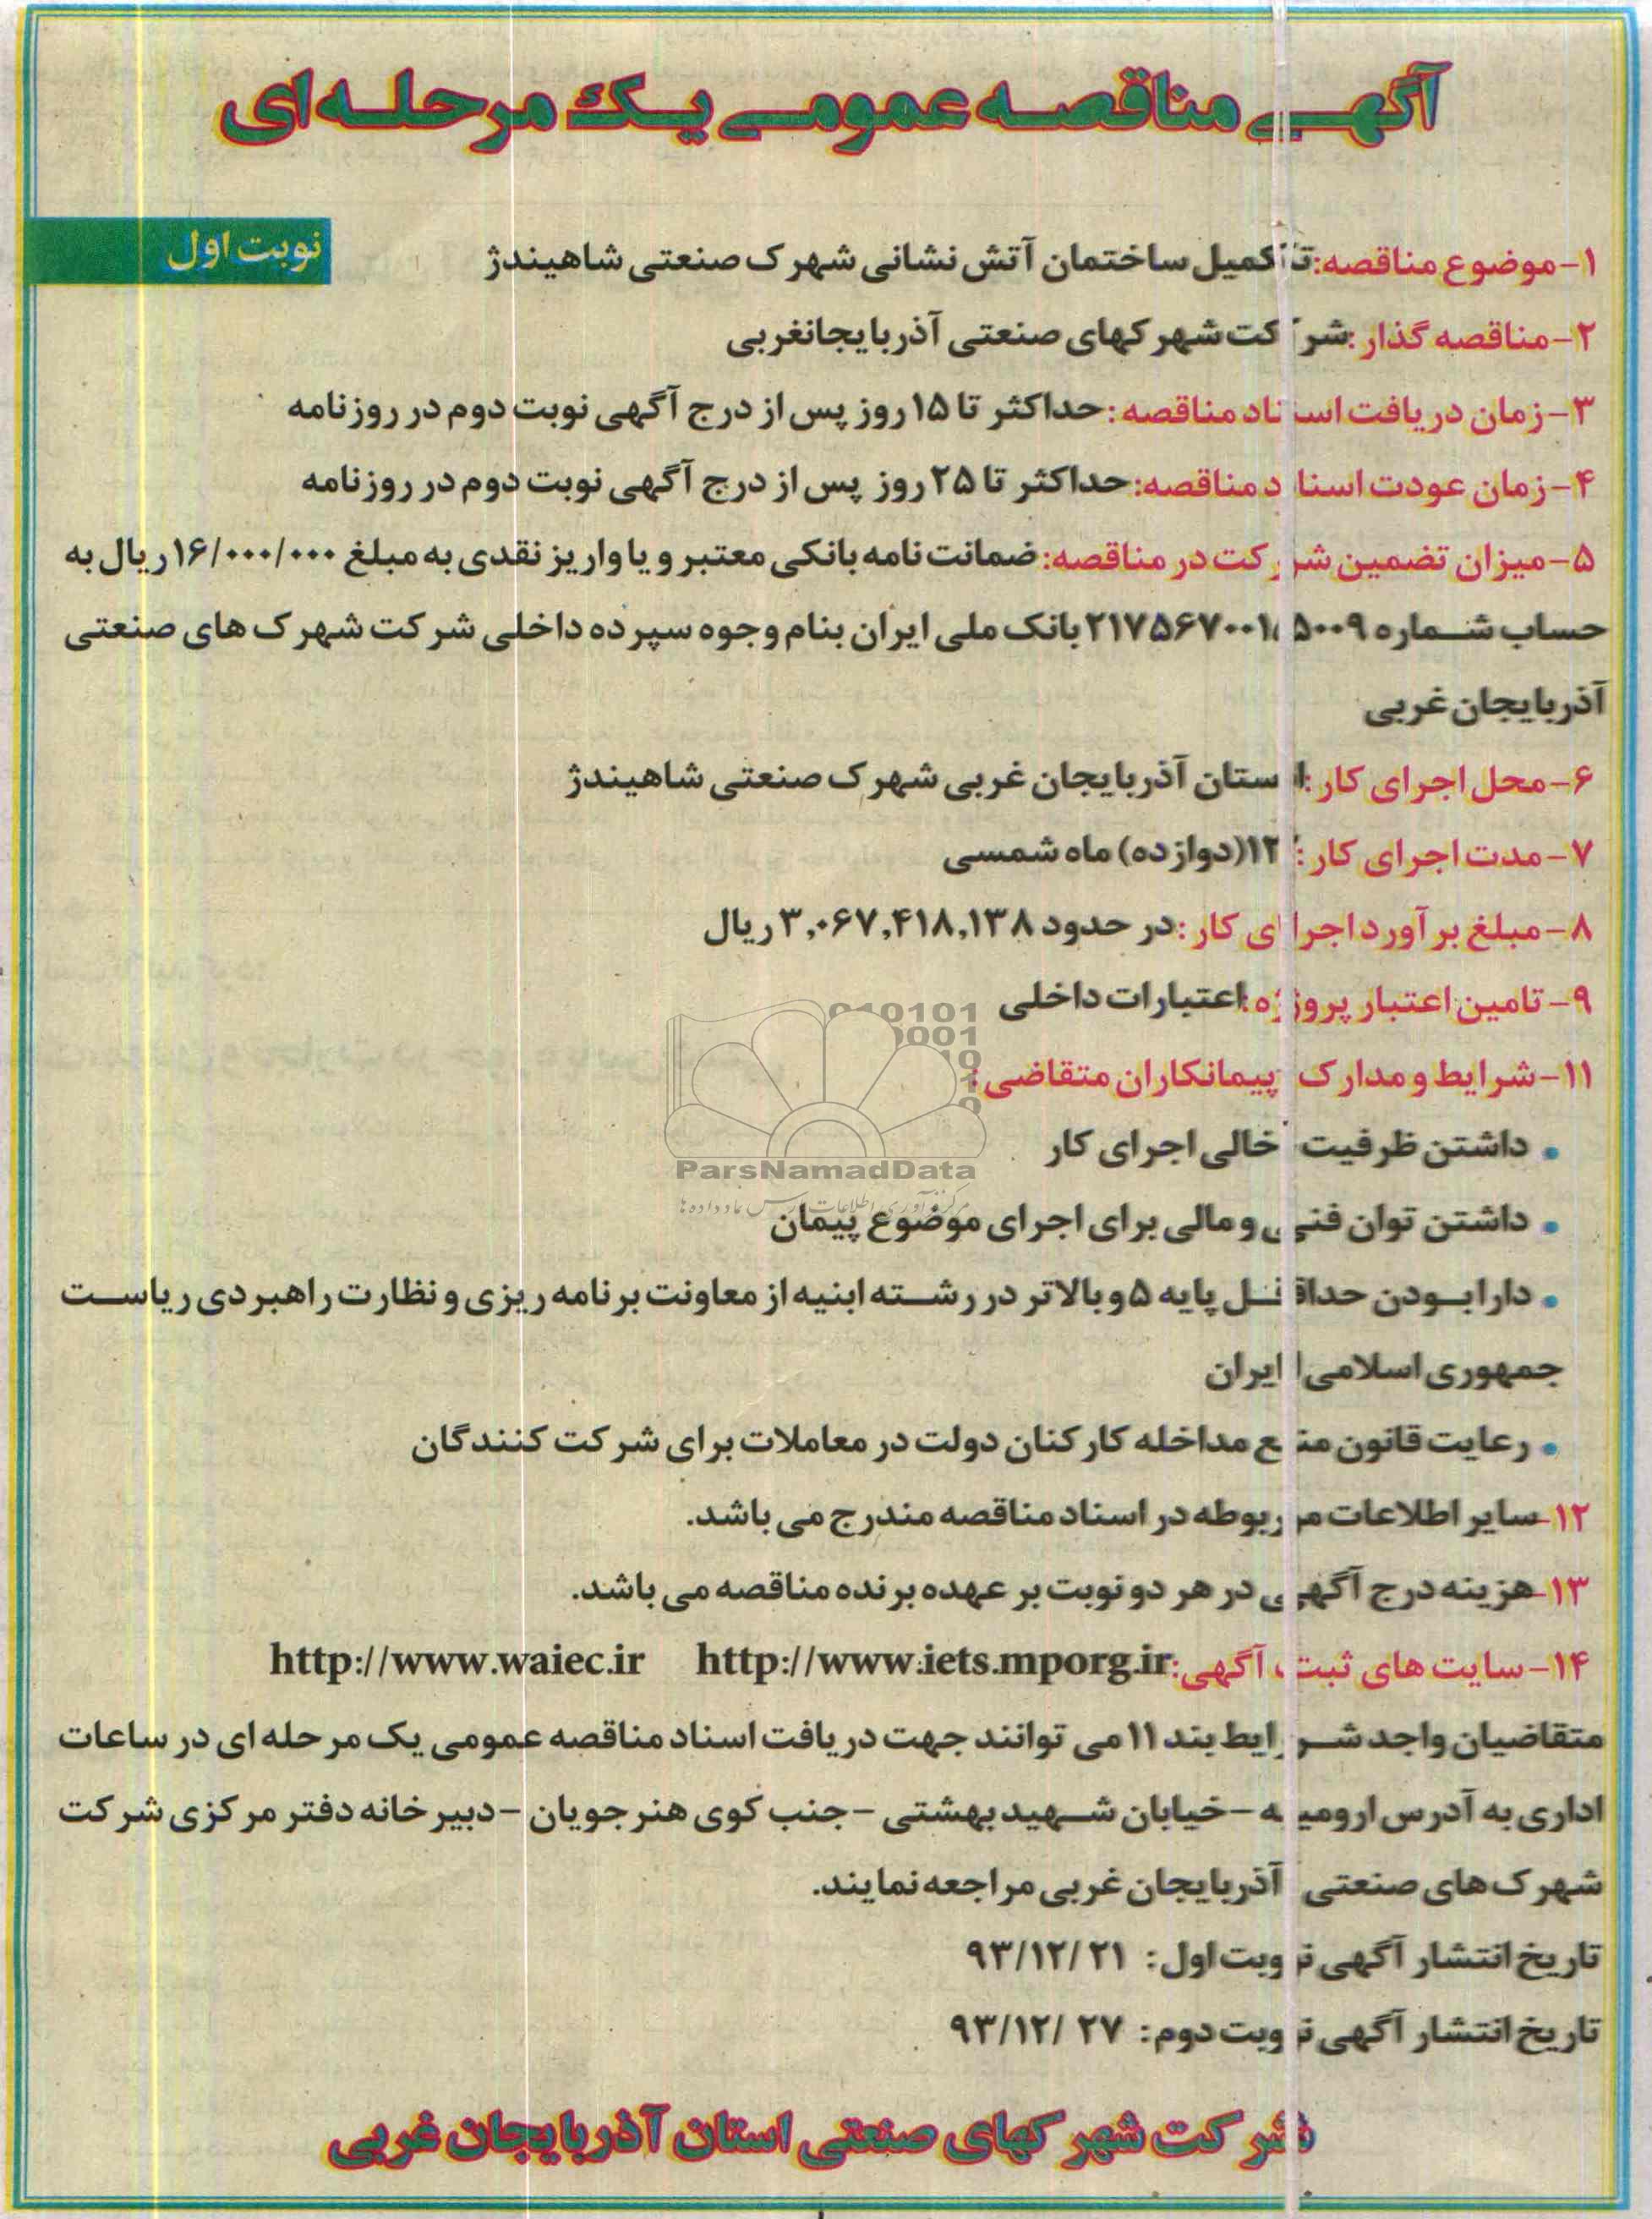 آگهی مناقصه عمومی یک مرحله ای
نوبت اول
۱-موضوع مناقصه: تکمیل ساختمان آتش نشانی شهرک صنعتی شاهیندژ
۲-مناقصه گذار: شرکت شهرکهای صنعتی آذربایجانغربی
۳-زمان دریافت اسناد مناقصه: حداکثر تا ۱۵ روز پس از درج آگهی نوبت دوم در روزنامه
۴-زمان عودت اسناد مناقصه: حداکثر تا ۲۵ روز پس از درج آگهی نوبت دوم در روزنامه
۵-میزان تضمین شرکت در مناقصه: ضمانت نامه بانکی معتبر و یا واریز نقدی به مبلغ ۱۶/۰۰۰/۰۰۰ ریال به
حساب شماره بانک ملی ایران بنام وجوه سپرده داخلی شرکت شهرک های صنعتی
آذربایجان غربی
۶-محل اجرای کار: استان آذربایجان غربی شهرک صنعتی شاهیندژ
۷-مدت اجرای کار: ۱۲(دوازده) ماه شمسی
۸-مبلغ برآورد اجرای کار: در حدود ۳,۰۶۷,۴۱۸,۱۳۸ ریال
۹-تامین اعتبار پروژه: اعتبارات داخلی
۱۱-شرایط و مدارک پیمانکاران متقاضی:
• داشتن ظرفیت خالی اجرای کار
• داشتن توان فنی و مالی برای اجرای موضوع پیمان
• دارا بودن حداقل پایه ۵ و بالاتر در رشته ابنیه از معاونت برنامه ریزی و نظارت راهبردی ریاست
جمهوری اسلامی ایران
• رعایت قانون منع مداخله کارکنان دولت در معاملات برای شرکت کنندگان
۱۲-سایر اطلاعات مربوطه در اسناد مناقصه مندرج می باشد.
۱۳-هزینه درج آگهی در هر دو نوبت بر عهده برنده مناقصه می باشد.
۱۴-سایت های ثبت آگهی: http://www.iets.mporg.ir http://www.waiec.ir
متقاضیان واجد شرایط بند ۱۱ می توانند جهت دریافت اسناد مناقصه عمومی یک مرحله ای در ساعات
اداری به آدرس ارومیه -خیابان شهید بهشتی -جنب کوی هنرجویان -دبیرخانه دفتر مرکزی شرکت
شهرک های صنعتی آذربایجان غربی مراجعه نمایند.
تاریخ انتشار آگهی نوبت اول: ۹۳/۱۲/۲۱
تاریخ انتشار آگهی نوبت دوم: ۹۳/۱۲/۲۷
شرکت شهرکهای صنعتی استان آذربایجان غربی
ParsNamadData